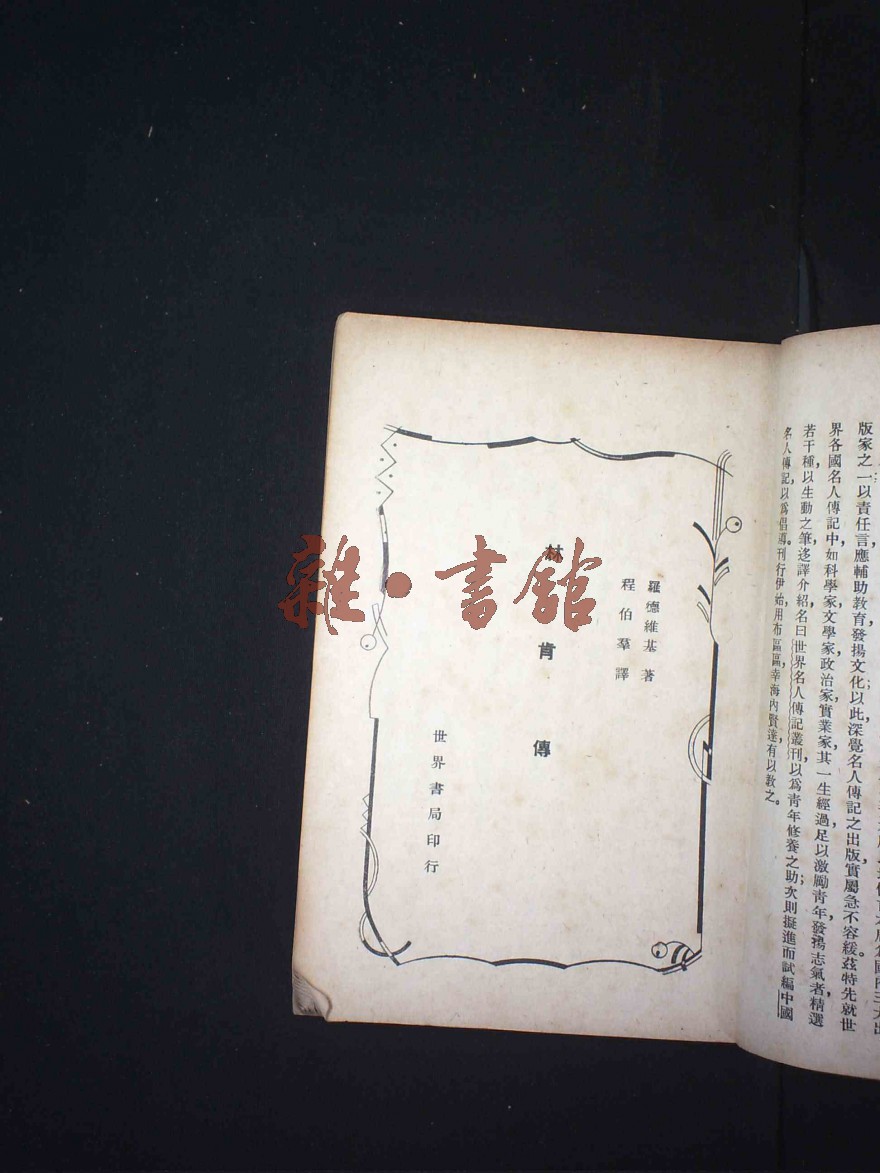 版家之一以責任言應輔助教育發揚文化以此深覺名人傳記之出版實屬急不容緩茲特先就世
界各國名人傳記中,如科學家文學家政治家實業家,其一生經過足以激勵青年,發揚志氣者,精選
若干種,以生動之筆,迻譯介紹,名曰世界名人傳記叢刊,以爲青年修養之助;次則擬進而試編中國
名人傳記,以爲倡導。刊行伊始,用布區區,幸海內賢達,有以敎之。
羅德維基著
程伯羣譯
林肯傳
世界書局印行
雜·書館